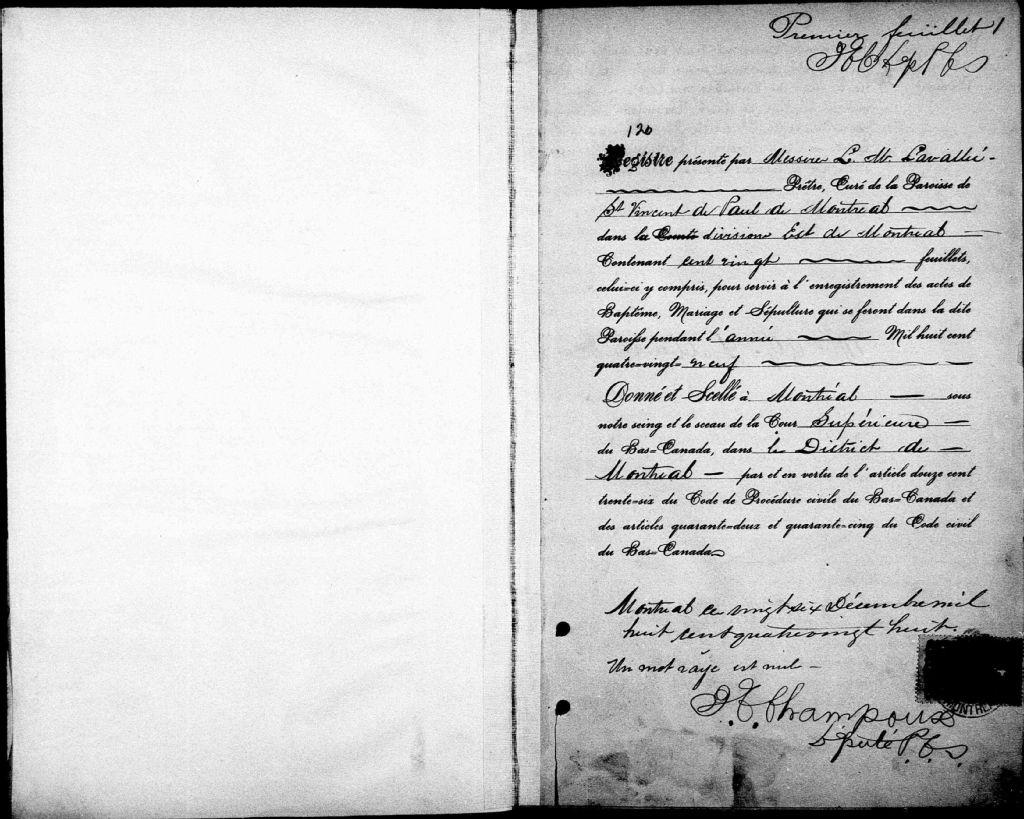 Premier feuillet 1
120
Registre présenté par Messire L. M. Lavallée -
Prêtre, Curé de la Paroisse de
St Vincent de Paul de Montreal
dans la Comté division Est de Montreal
Contenant cent vingt feuillets,
celui-ci y compris, pour servir à l'enregistrement des actes de
Baptême, Mariage et Sépulture qui se feront dans la dite
Paroisse pendant l'année Mil huit cent
quatre-vingt-neuf
Donné et Scellé à Montréal sous
notre seing et le sceau de la Cour Supérieure
du Bas-Canada, dans le District de
Montreal par et en vertu de l'article douze cent
trente-six du Code de Procédure civile du Bas-Canada et
des articles quarante-deux et quarante-cinq du Code civil
du Bas-Canada
Montreal ce vingt six Décembre mil
huit cent quatrevingt huit.
Un mot rayé est nul -
Champoux
Député P.C.S.